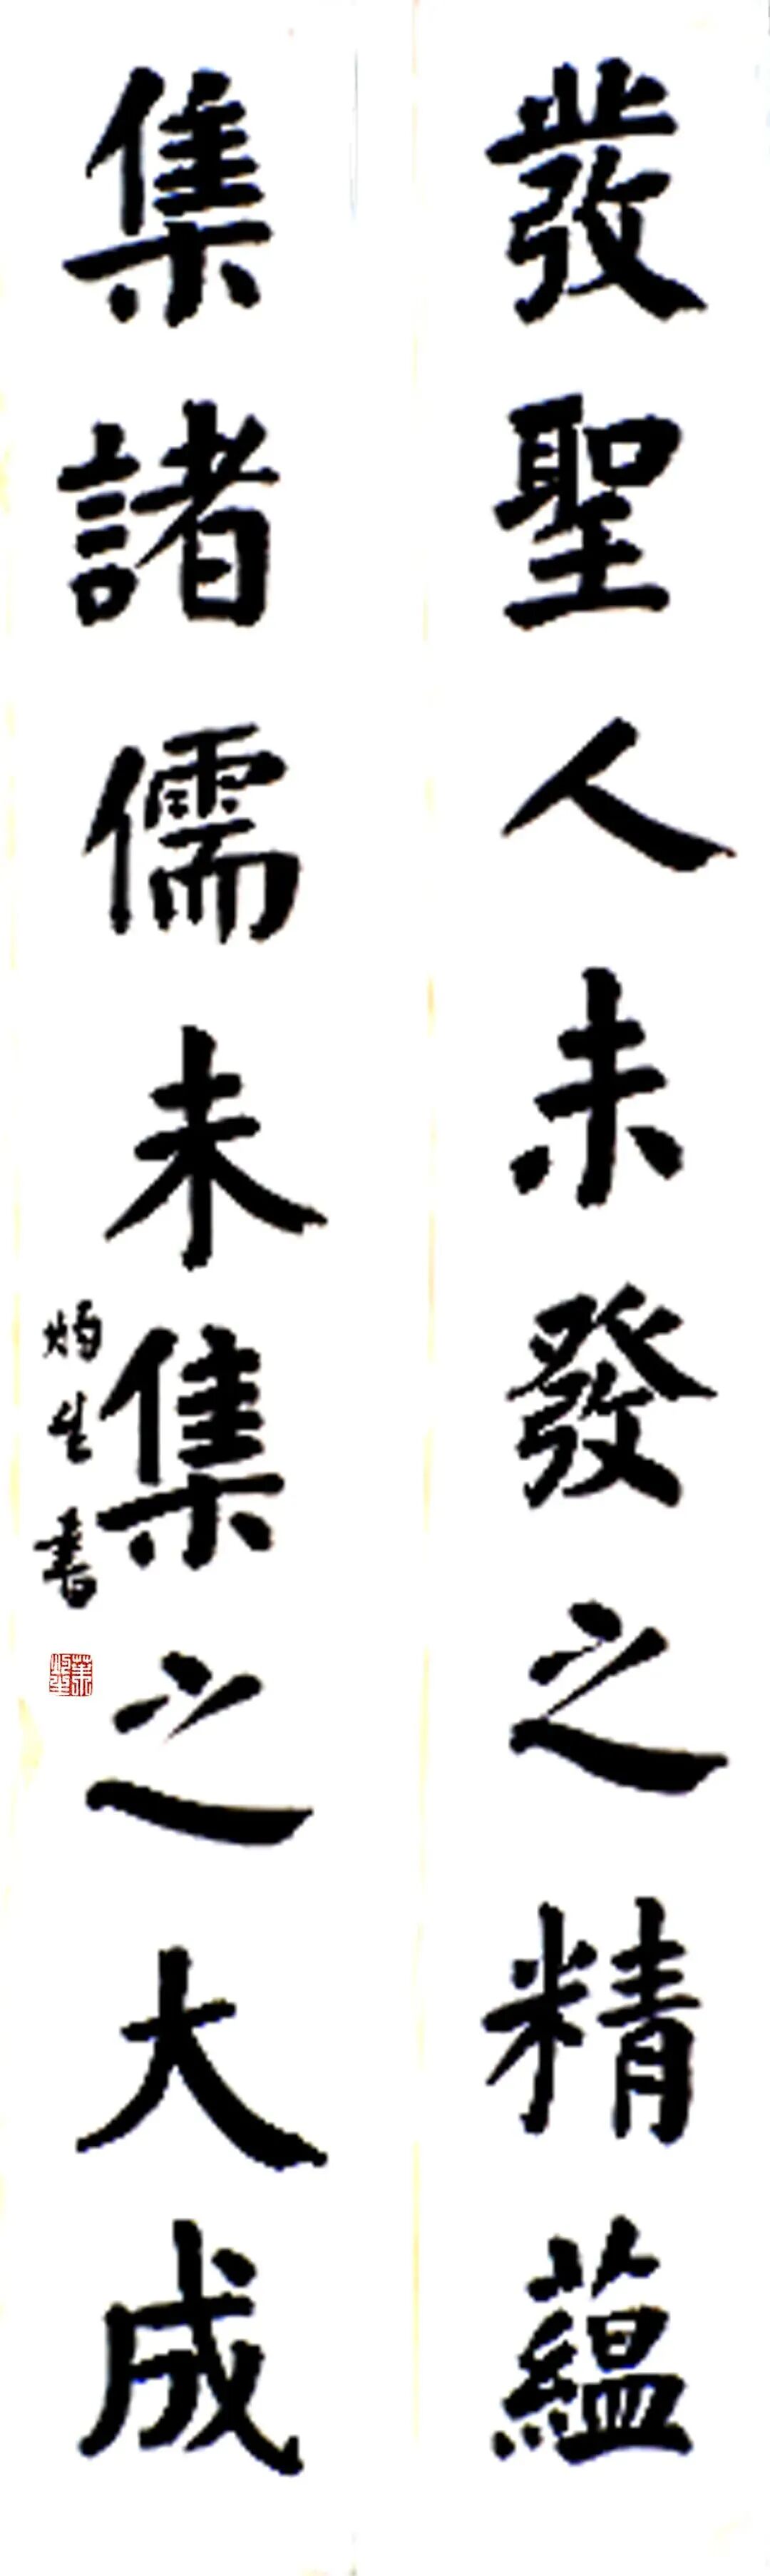 發聖人未發之精蘊
集諸儒未集之大成
灼生書